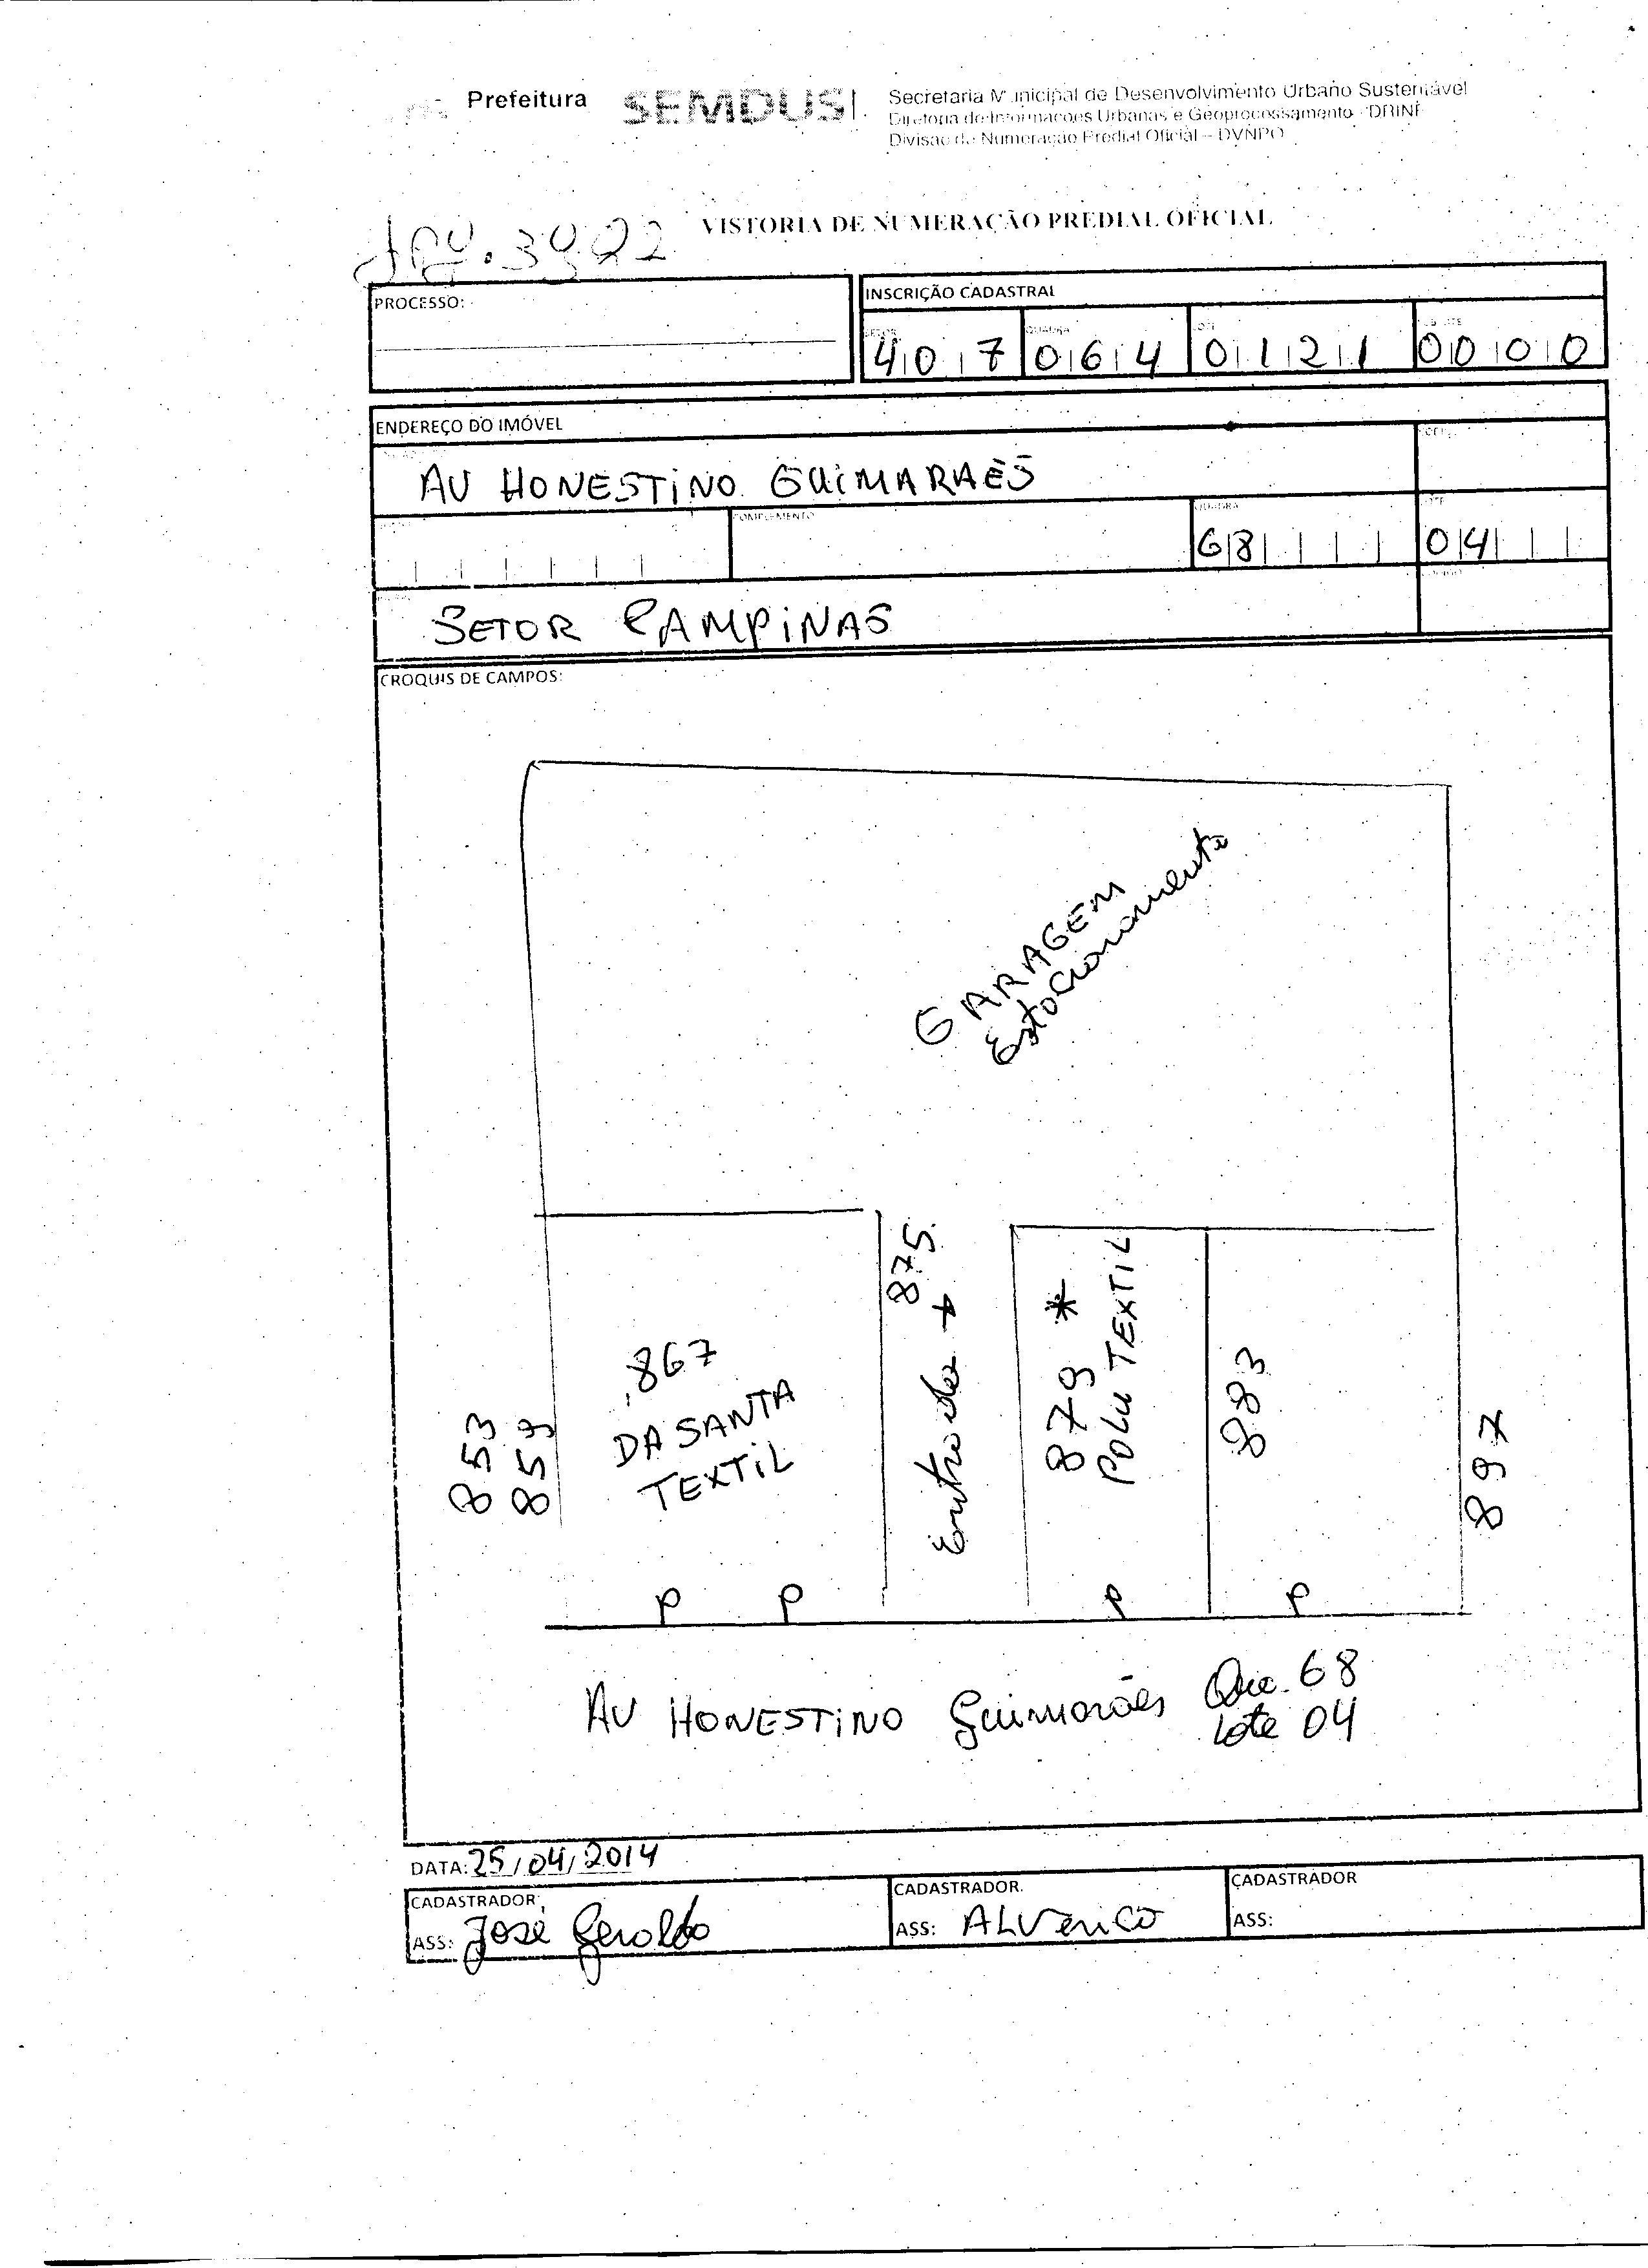 Prefeitura SEMDUS
Secretaria Municipal de Desenvolvimento Urbano Sustentável
Diretoria de Informações Urbanas e Geoprocessamento - DRINF
Divisão de Numeração Predial Oficial – DVNPO
VISTORIA DE NUMERAÇÃO PREDIAL OFICIAL
PROCESSO:
INSCRIÇÃO CADASTRAL
SETOR QUADRA LOTE
407 064 0121 0000
ENDEREÇO DO IMÓVEL
AV HONESTINO GUIMARAES
COMPLEMENTO QUADRA LOTE
68 04
SETOR CAMPINAS
CROQUIS DE CAMPOS:
GARAGEM
Estacionamento
853
859
867
DA SANTA
TEXTIL
875
Entrada
879 *
POLU TEXTIL
883
897
P P P P
AV HONESTINO Guimarães Qua. 68
Lote 04
DATA: 25/04/2014
CADASTRADOR:
ASS: Jose Geraldo
CADASTRADOR.
ASS: ALVERICO
CADASTRADOR
ASS: